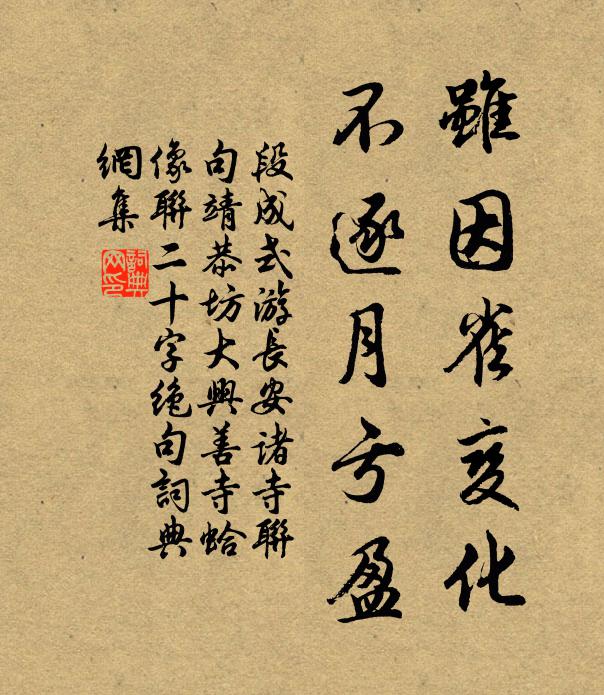 雖因雀變化
不逐月亏盈
段成式游長安諸寺聯
句靖恭坊大興善寺蛤
像聯二十字絶句詞典
網集
詞典網印